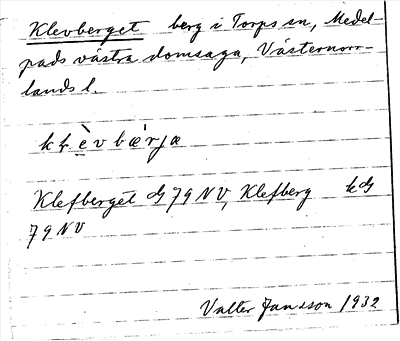 Klevberget berg i Torps sn, Medel-
pads västra domsaga, Västernorr-
lands l.
kḷèvbæ̀rja
Klefberget G 79 NV, Klefberg kG
79 NV
Valter Jansson 1932